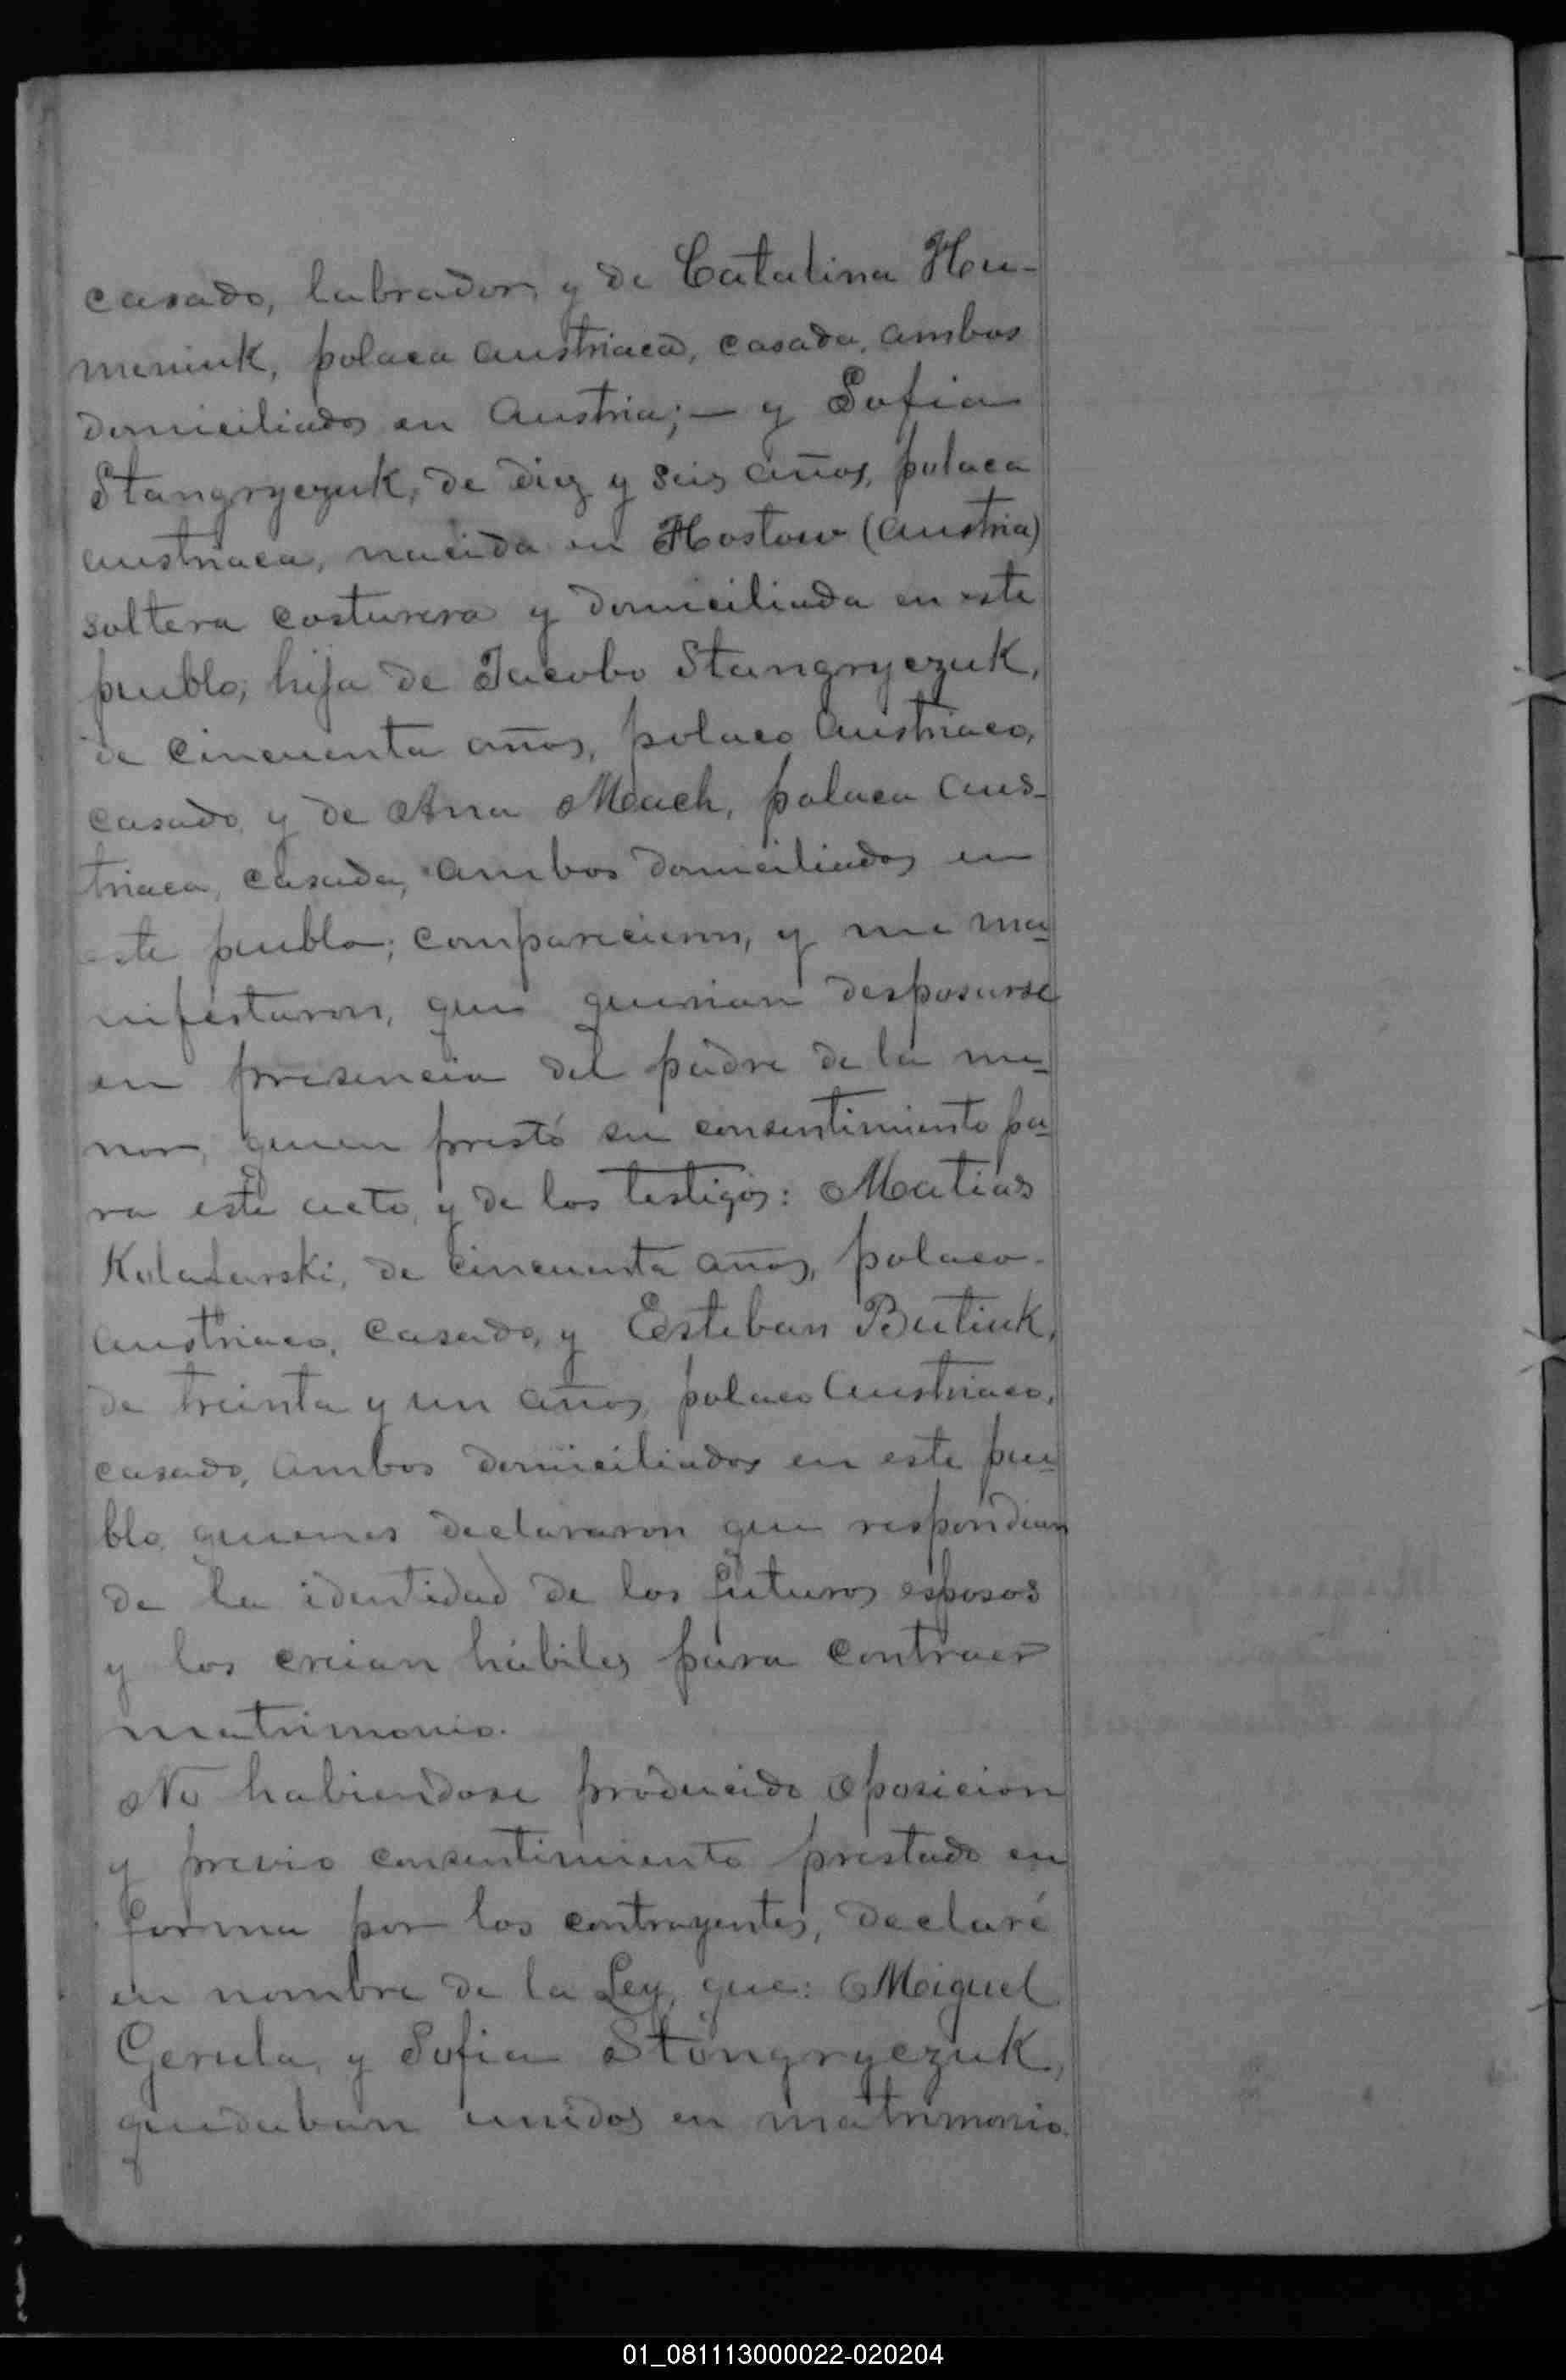 casado, labrador, y de Catalina Hu-
meniuk, polaca austriaca, casada, ambos
domiciliados en Austria; — y Sofia
Stangryczuk, de diez y seis años, polaca
austriaca, nacida en Hostow (Austria)
soltera costurera y domiciliada en este
pueblo, hija de Jacobo Stangryczuk,
de cincuenta años, polaco austriaco,
casado, y de Ana Mach, polaca aus-
triaca, casada, ambos domiciliados en
este pueblo; comparecieron, y me ma-
nifestaron, que querian desposarse
en presencia del padre de la me-
nor, quien prestó su consentimiento pa-
ra este acto, y de los testigos: Matias
de cincuenta años, polaco-
austriaco, casado, y Esteban Butiuk,
de treinta y un años, polaco austriaco,
casado, ambos domiciliados en este pue-
blo, quienes declararon que respondian
de la identidad de los futuros esposos
y los creian hábiles para contraer
matrimonio.
No habiendose producido oposicion
y previo consentimiento prestado en
forma por los contrayentes, declaré
en nombre de la Ley, que: Miguel
Gerula, y Sofia Stongryczuk,
quedaban unidos en matrimonio.
01_081113000022-020204